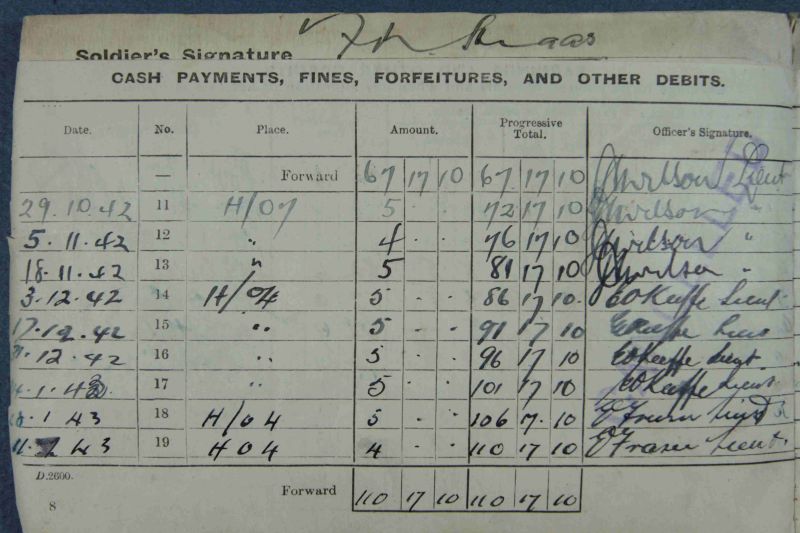 Soldier's Signature
CASH PAYMENTS, FINES, FORFEITURES, AND OTHER DEBITS.
Date. No. Place. Amount. Progressive Total. Officer's Signature.
— Forward 67 17 10 67 17 10 Wilson Lieut
29.10.42 11 H/07 5 · · 72 17 10 Wilson "
5.11.42 12 " 4 · · 76 17 10 Wilson "
18.11.42 13 " 5 · · 81 17 10 Wilson "
3.12.42 14 H/04 5 · · 86 17 10. EOKeeffe Lieut
17.12.42 15 " 5 · · 91 17 10 EOKeeffe Lieut
12.42 16 " 5 · · 96 17 10 EOKeeffe Lieut.
1.43 17 " 5 · · 101 17 10 EOKeeffe Lieut
1 43 18 H/04 5 · · 106 17. 10 Fraser Lieut
11.2 43 19 H04 4 · · 110 17 10 Fraser Lieut.
D.2600.
Forward 110 17 10 110 17 10
8